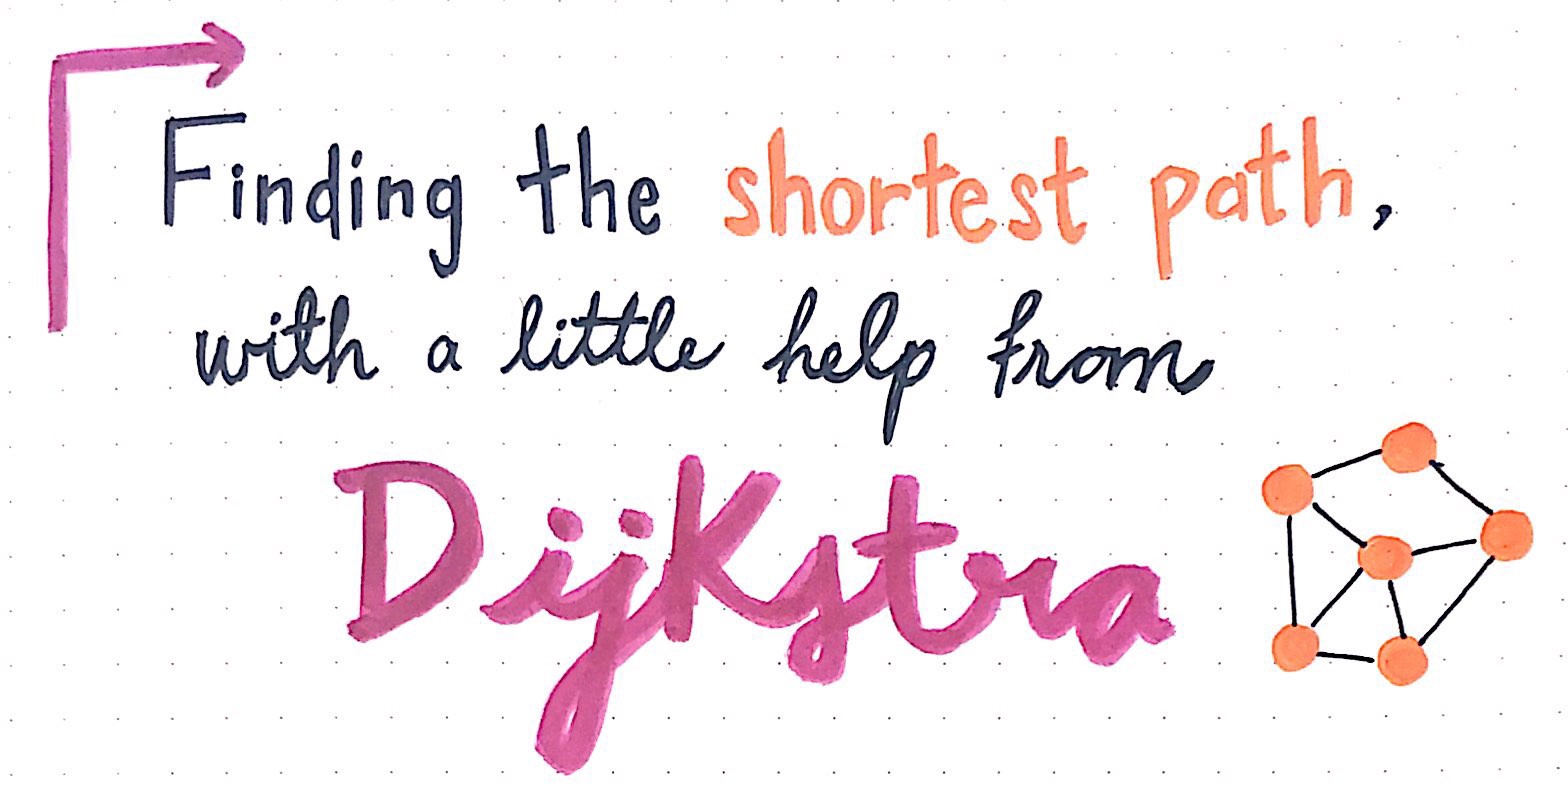 Finding the shortest path,
with a little help from
DijKstra